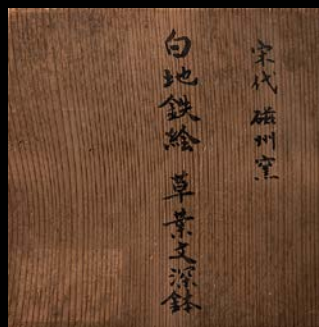 宋代 磁州窯
白地鉄絵 草葉文深鉢